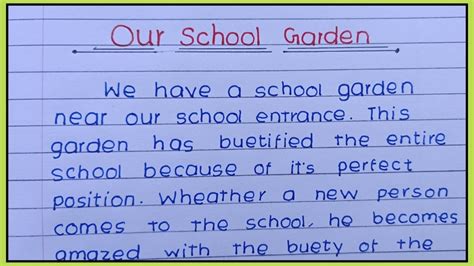 Our School Garden
We have a school garden
near our school entrance. This
garden has buetified the entire
school because of it's perfect
position. Wheather a new person
comes to the school, he becomes
amazed with the buety of the